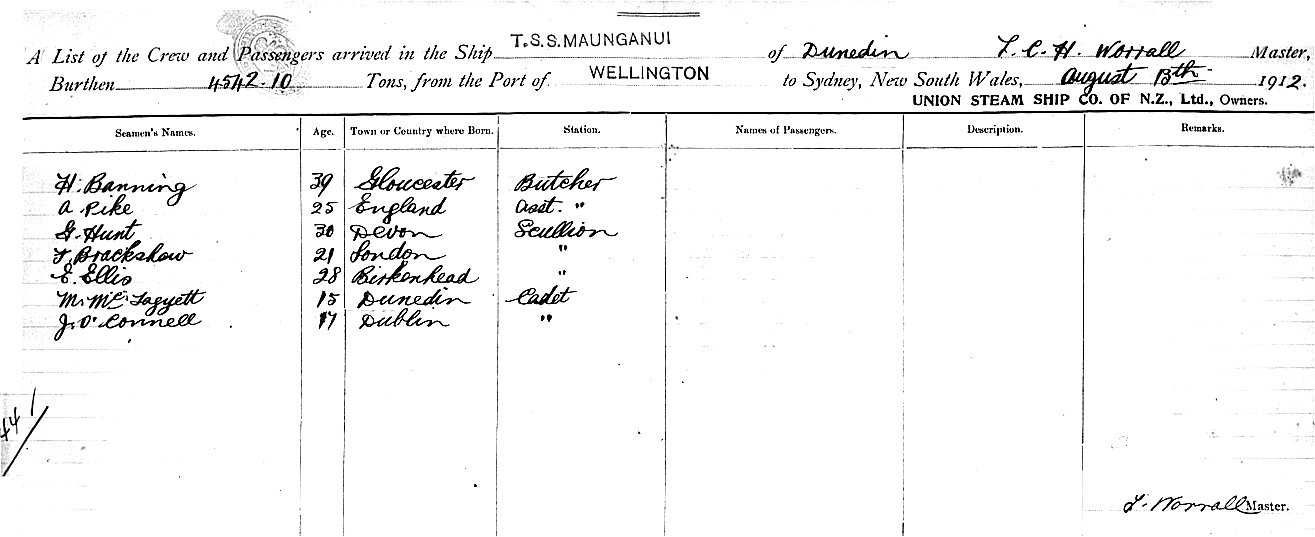 A List of the Crew and Passengers arrived in the Ship T.S.S. MAUNGANUI of Dunedin L. C. H. Worrall Master,
Burthen 4542.10 Tons, from the Port of WELLINGTON to Sydney, New South Wales, August 13th 1912.
UNION STEAM SHIP CO. OF N.Z., Ltd., Owners.
Seamen's Names. Age. Town or Country where Born. Station. Names of Passengers. Description. Remarks.
H. Banning 39 Gloucester Butcher
A Pike 25 England Asst. "
G. Hunt 30 Devon Scullion
F. Brackshaw 21 London "
E. Ellis 28 Birkenhead "
M. Mc 15 Dunedin Cadet
J. O'Connell 17 Dublin "
441
L. Worrall Master.